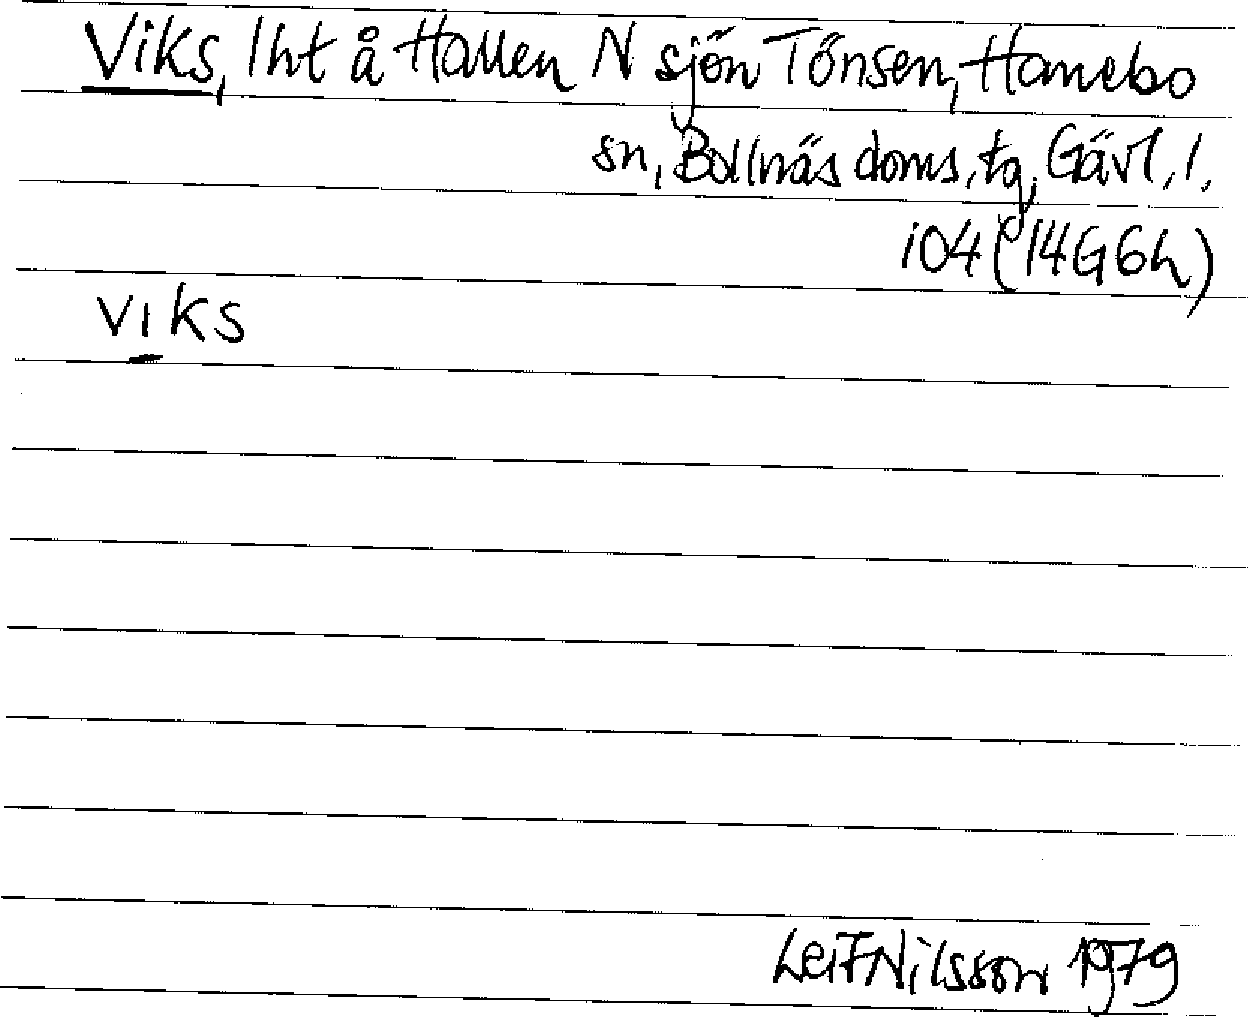 Viks, lht å Hallen N sjön Tönsen, Hanebo
sn, Bollnäs doms. tg, Gävl. l.
104 (14G6h)
viks
Leif Nilsson 1979